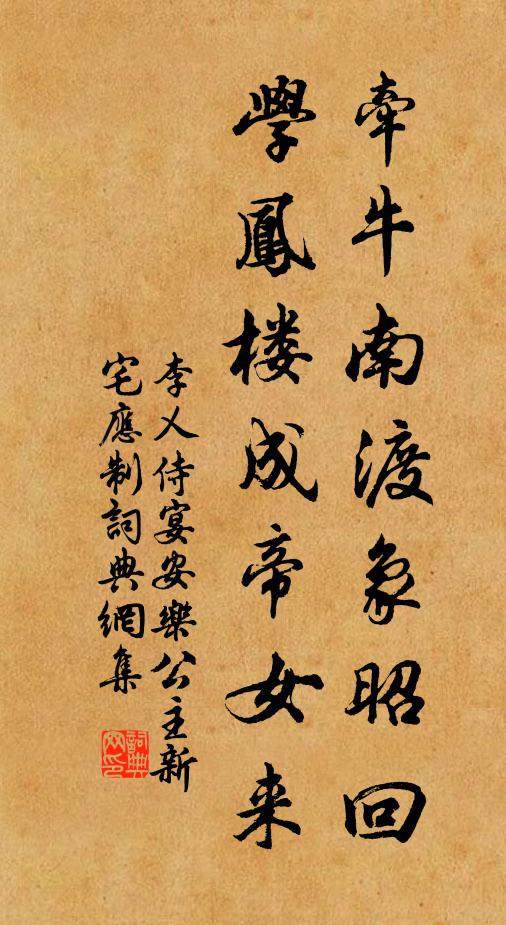 牽牛南渡象昭回
學鳳楼成帝女来
李乂侍宴安樂公主新
宅應制詞典網集
詞典
网印